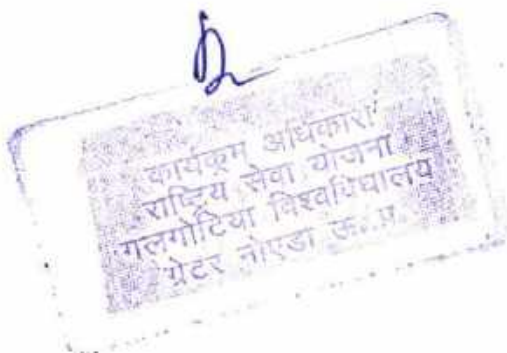 कार्यकूम अधिकारी
राष्ट्रिय सेवा योजना
गलगोटिया विश्वविधालय
ग्रेटर नोएडा ऊ. प्र.